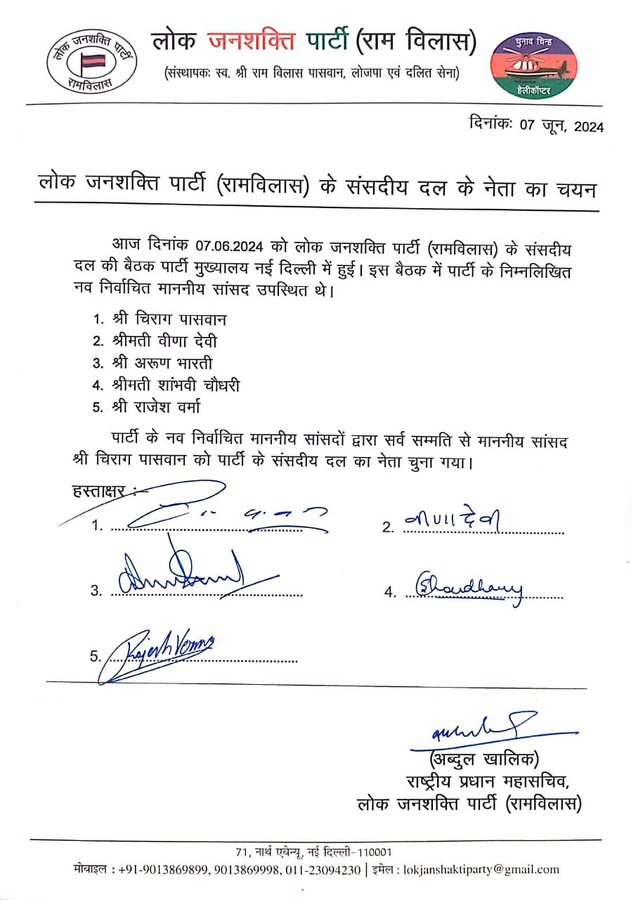 लोक जनशक्ति पार्टी
रामविलास
लोक जनशक्ति पार्टी (राम विलास)
(संस्थापकः स्व. श्री राम विलास पासवान, लोजपा एवं दलित सेना)
चुनाव चिन्ह
हेलीकॉप्टर
दिनांकः 07 जून, 2024
लोक जनशक्ति पार्टी (रामविलास) के संसदीय दल के नेता का चयन
आज दिनांक 07.06.2024 को लोक जनशक्ति पार्टी (रामविलास) के संसदीय
दल की बैठक पार्टी मुख्यालय नई दिल्ली में हुई। इस बैठक में पार्टी के निम्नलिखित
नव निर्वाचित माननीय सांसद उपस्थित थे।
1. श्री चिराग पासवान
2. श्रीमती वीणा देवी
3. श्री अरूण भारती
4. श्रीमती शांभवी चौधरी
5. श्री राजेश वर्मा
पार्टी के नव निर्वाचित माननीय सांसदों द्वारा सर्व सम्मति से माननीय सांसद
श्री चिराग पासवान को पार्टी के संसदीय दल का नेता चुना गया।
हस्ताक्षर :-
1.
2. वीणा देवी
3.
4. SChaudhary
5. Rajesh Verma
(अब्दुल खालिक)
राष्ट्रीय प्रधान महासचिव,
लोक जनशक्ति पार्टी (रामविलास)
71, नार्थ एवेन्यू, नई दिल्ली-110001
मोबाइल : +91-9013869899, 9013869998, 011-23094230 | इमेल : lokjanshaktiparty@gmail.com